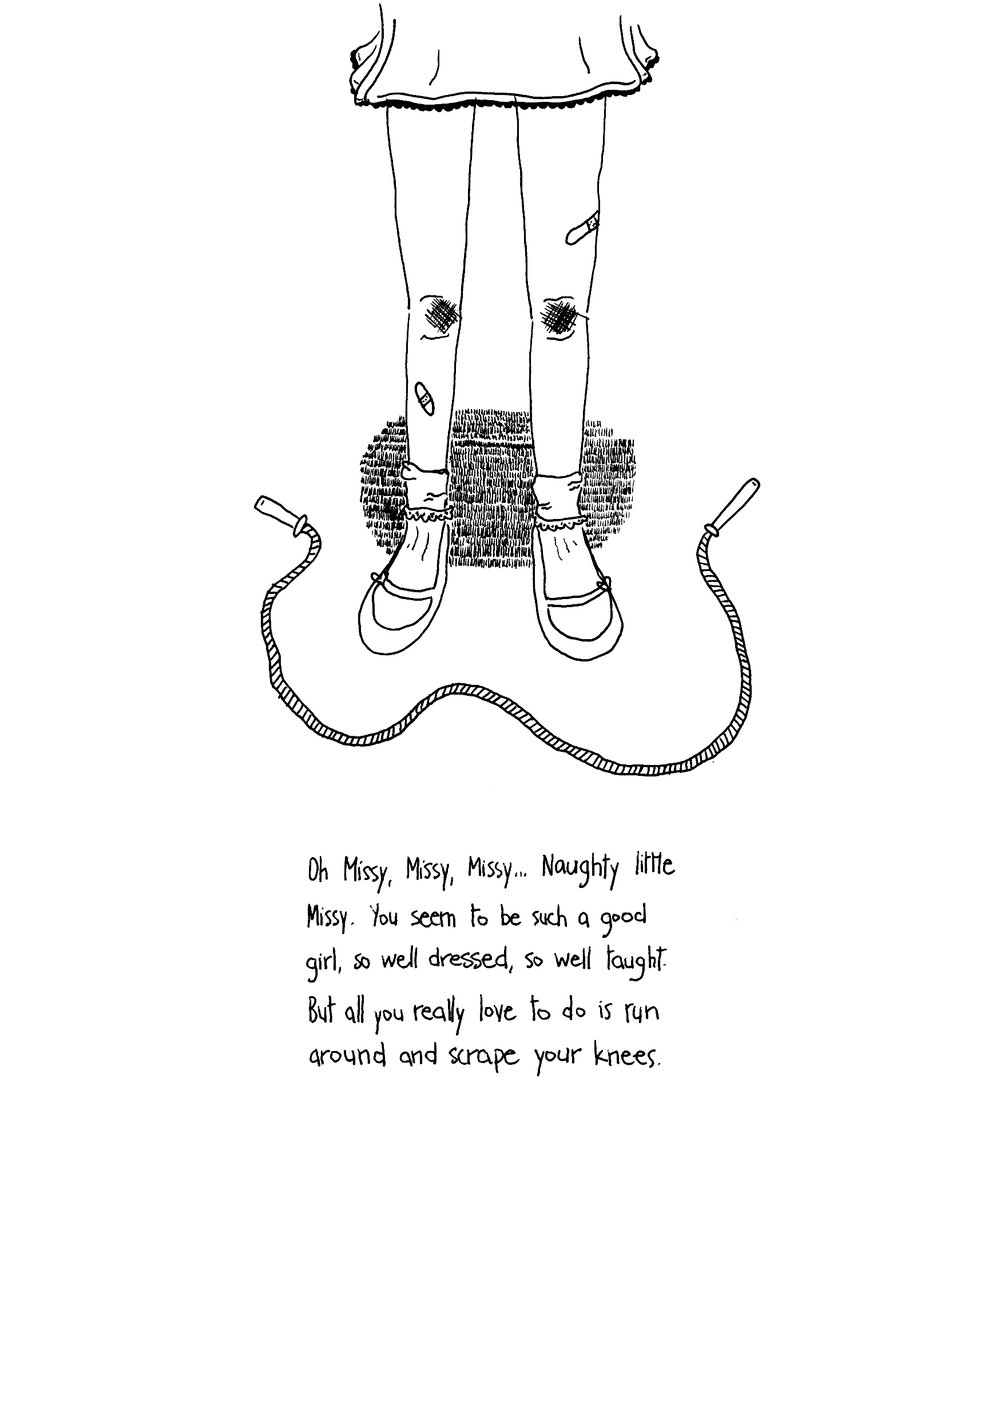 Oh Missy, Missy, Missy... Naughty little
Missy. You seem to be such a good
girl, so well dressed, so well taught.
But all you really love to do is run
around and scrape your knees.